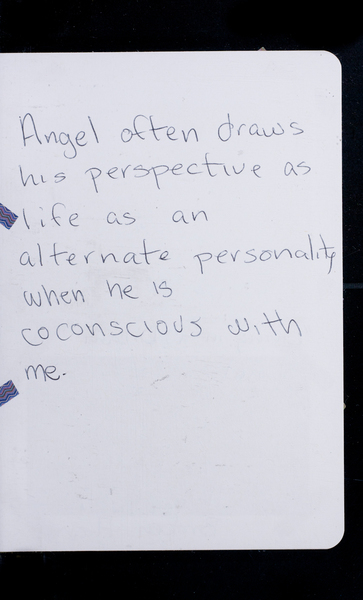 Angel often draws
his perspective as
life as an
alternate personality
when he is
coconscious with
me.